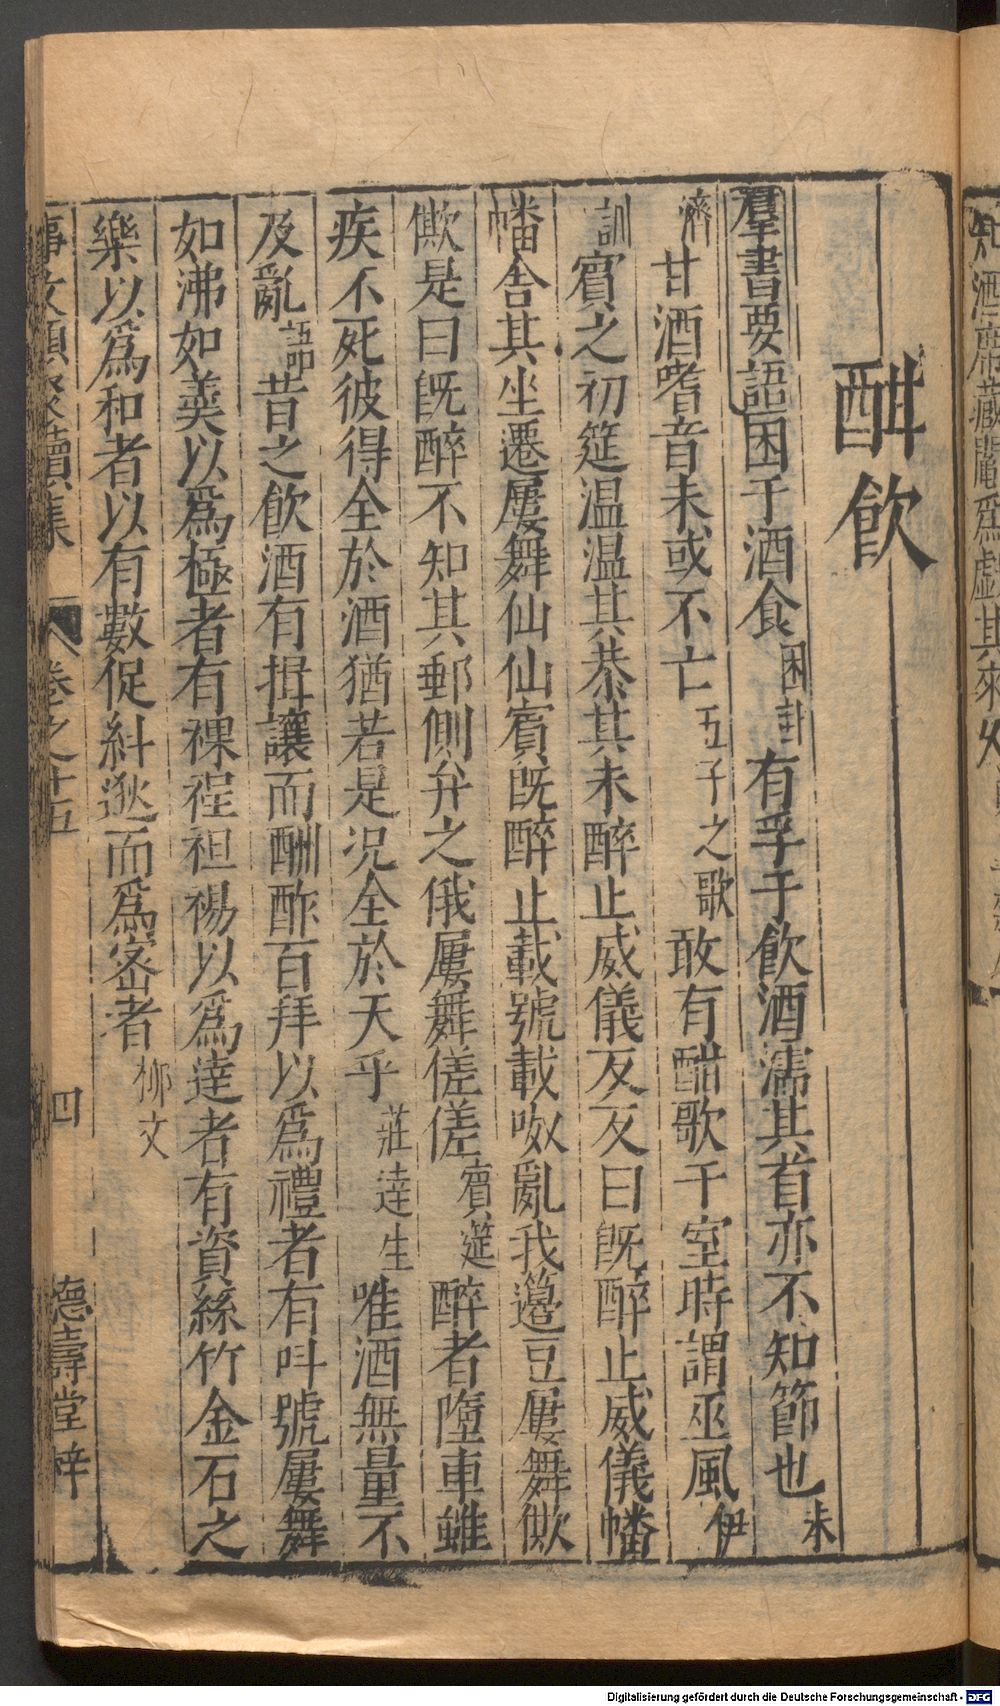 酣飲
羣書要語困于酒食困卦有孚于飲酒濡其首亦不知節也未
濟甘酒嗜音未或不亡五子之歌敢有酣歌于室時謂巫風伊
訓賓之初筵温温其恭其未醉止威儀反反曰旣醉止威儀幡
幡舍其坐遷屢舞仙仙賓旣醉止載號載呶亂我籩豆屢舞僛
僛是曰旣醉不知其郵側弁之俄屢舞傞傞賓筵醉者墮車雖
疾不死彼得全於酒猶若是况全於天乎莊達生唯酒無量不
及亂語昔之飲酒有揖讓而酬酢百拜以爲禮者有呌號屢舞
如沸如羮以爲極者有裸裎袒裼以爲達者有資絲竹金石之
樂以爲和者以有數促糾逖而爲密者柳文
事文類聚續集 卷之十五 四 德壽堂梓
Digitalisierung gefördert durch die Deutsche Forschungsgemeinschaft - DFG